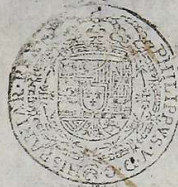 PHILIPPVS · V · D · G · HISPANIAR · R